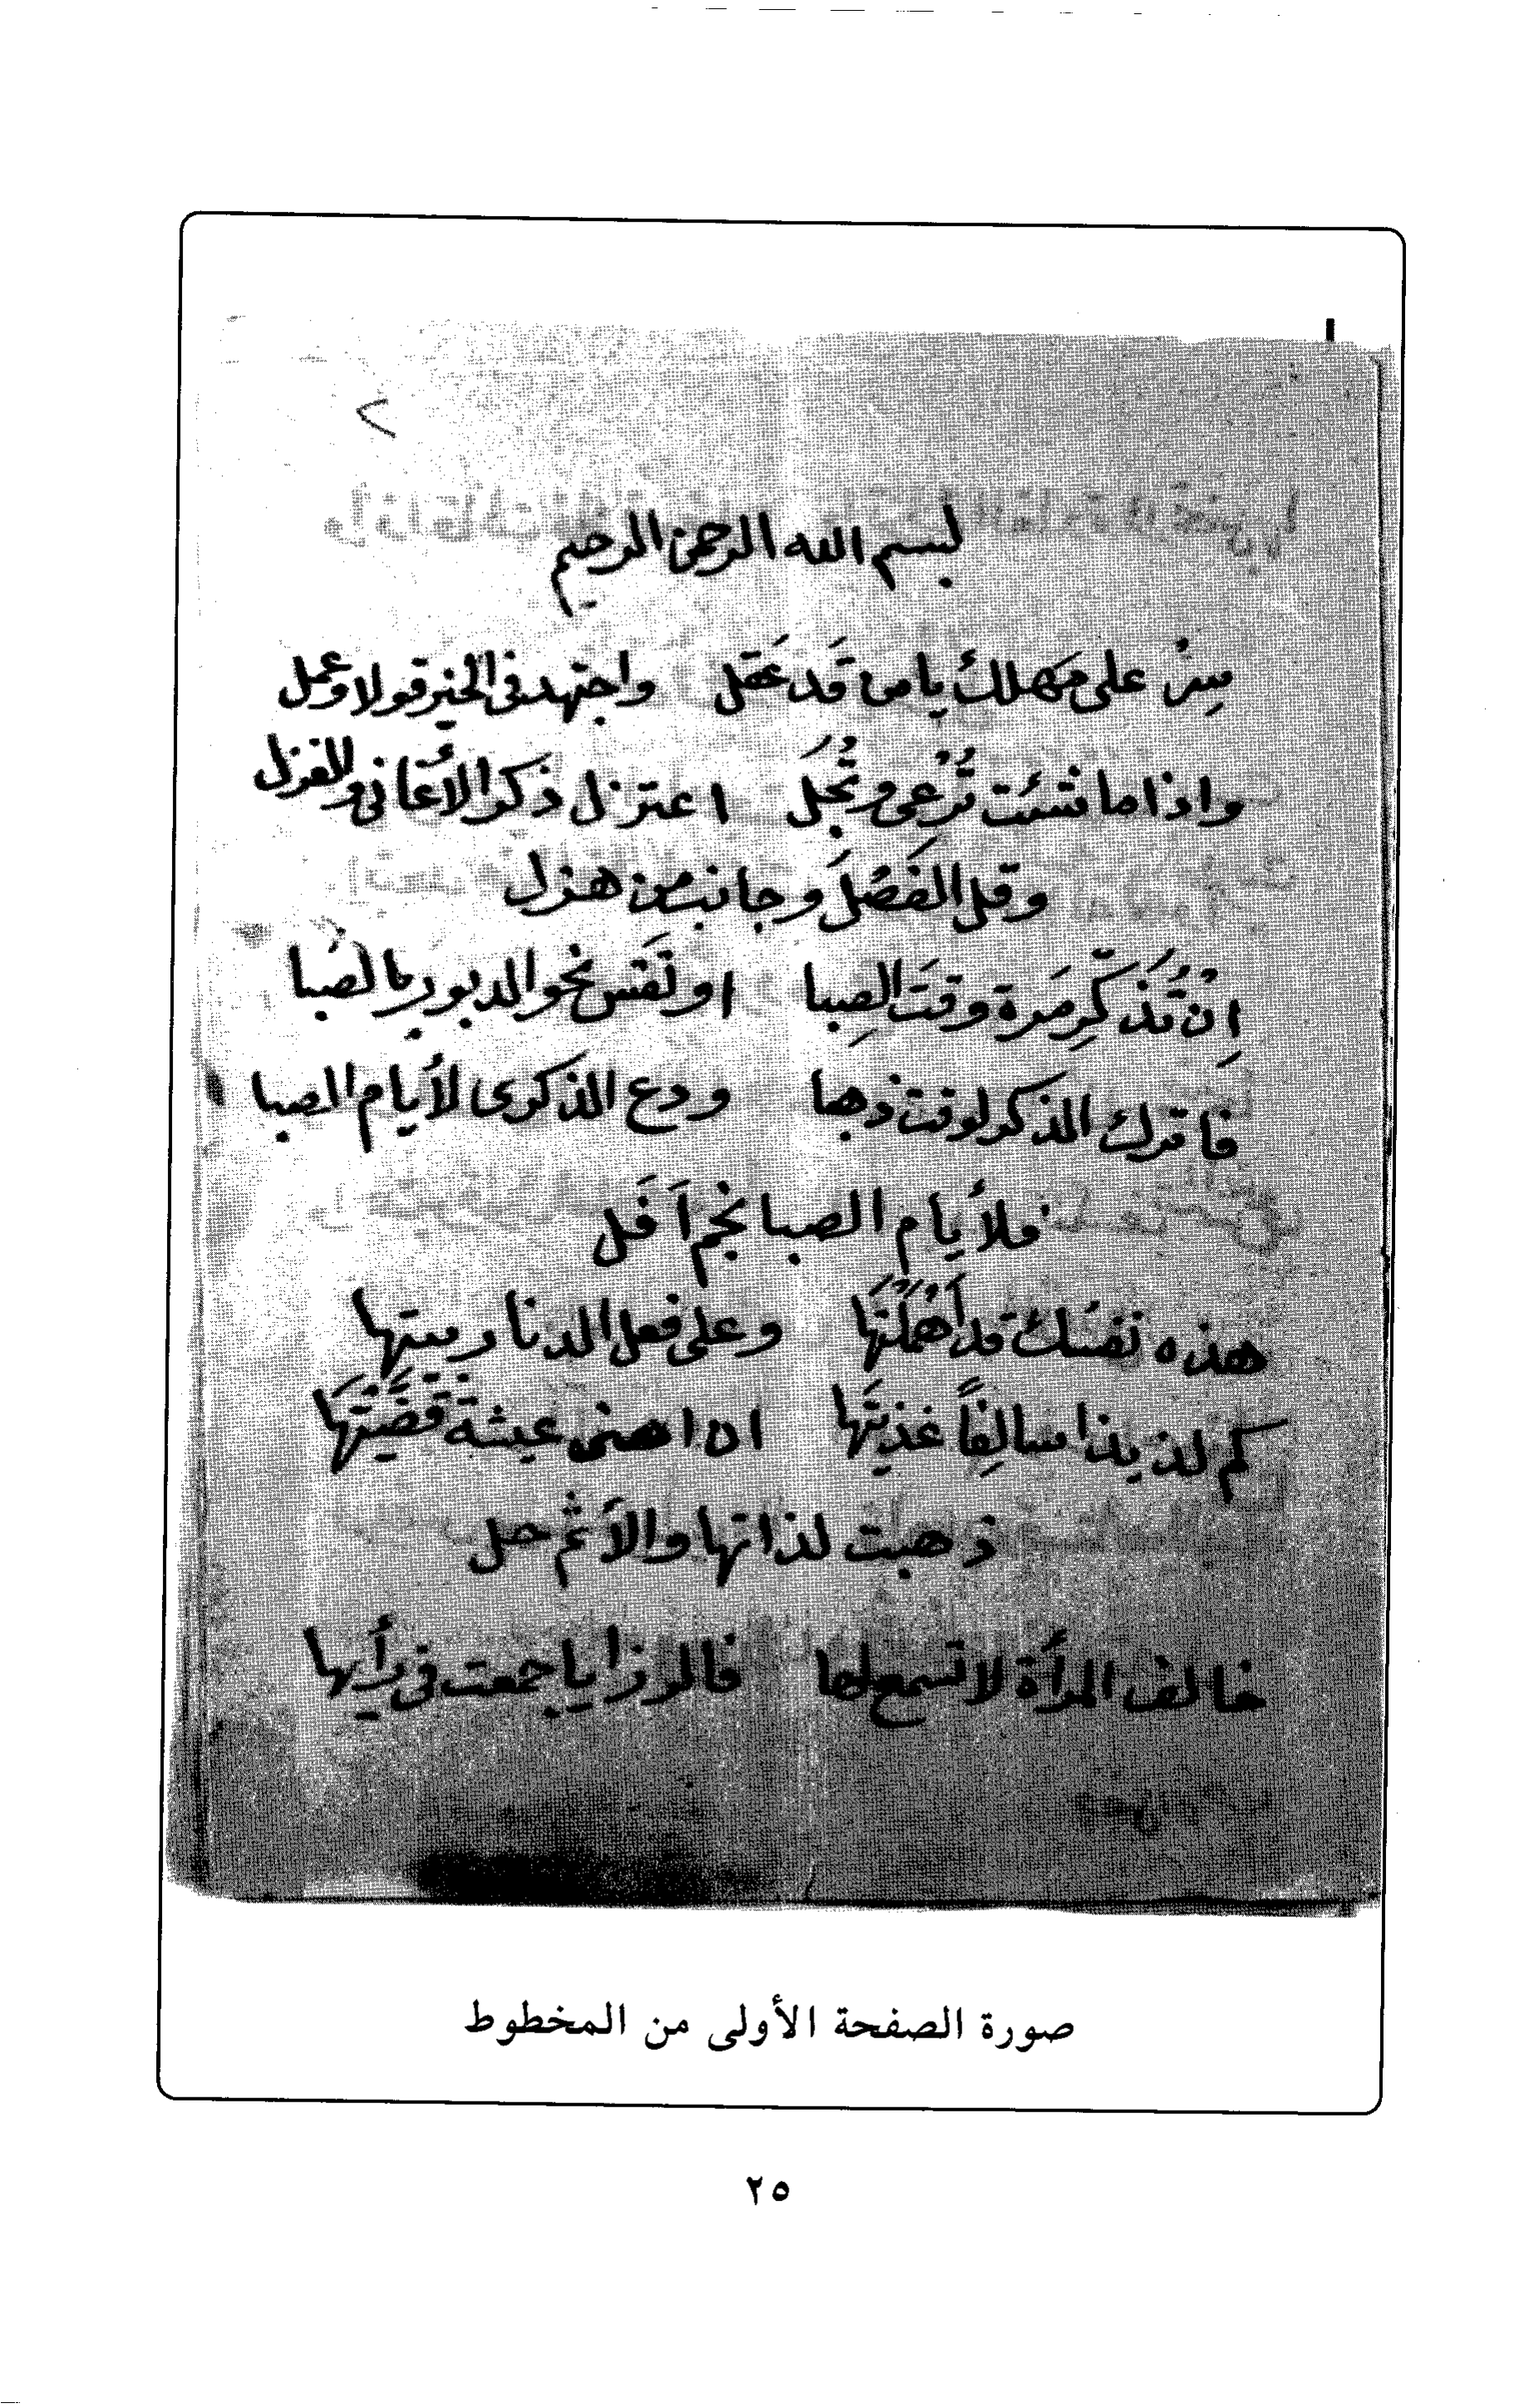 بسم الله الرحمن الرحيم
سِرْ على مَهلكَ يا من قَد عَقَل واجتهد فى الخير قولا وعمل
واذا ما شئت تُرْعى وتُجَلْ اعتزل ذكر الأغانى والغزل
وقل الفَصْلَ وجانب من هزل
إنْ تُذكِّر مَرة وقتَ الصِبا او نَفَس نحو الدبور بالصَبا
فاترك الذكر لوقت ذهبا ودع الذكرى لأيام الصبا
فلأيام الصبا نجم أَفَل
هذه نفسك قد أَهْمَلْتَها وعلى فعل الدنا ربيتها
كم لذيذا سالِفاً غذيتَها ان اهنى عيشة قضَّيْتَهَا
ذهبت لذاتها والأثم حل
خالف المرأة لا تسمع لها فالرزايا جمعت فى رأيها
صورة الصفحة الأولى من المخطوط
٢٥